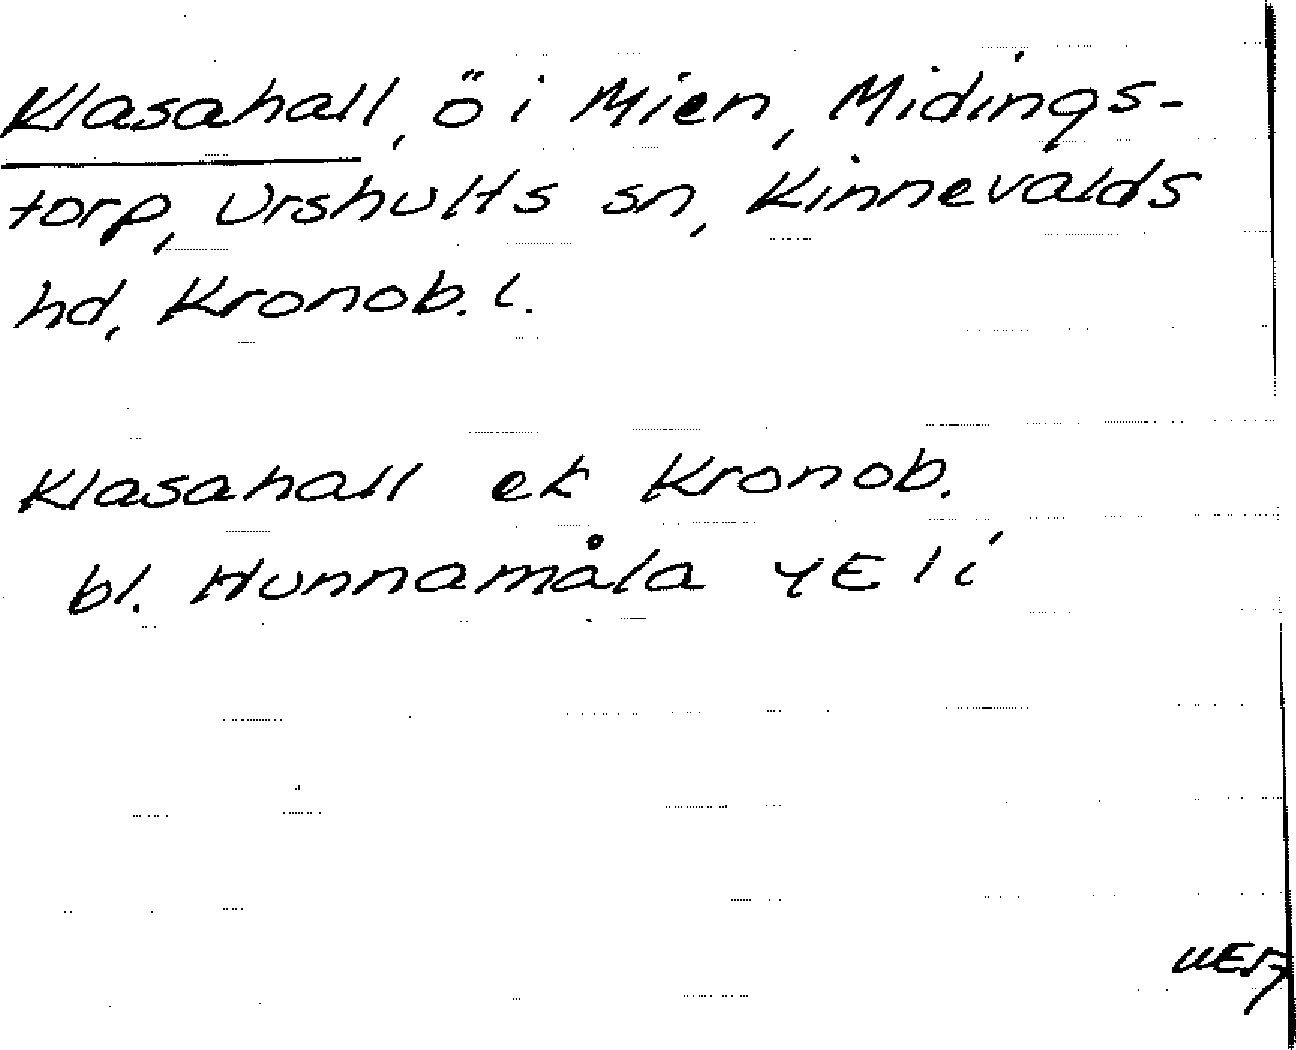 Klasahall, ö i Mien, Midings-
torp, Urshults sn, Kinnevalds
hd, Kronob. l.
Klasahall ek Kronob.
bl. Hunnamåla YE 1 i